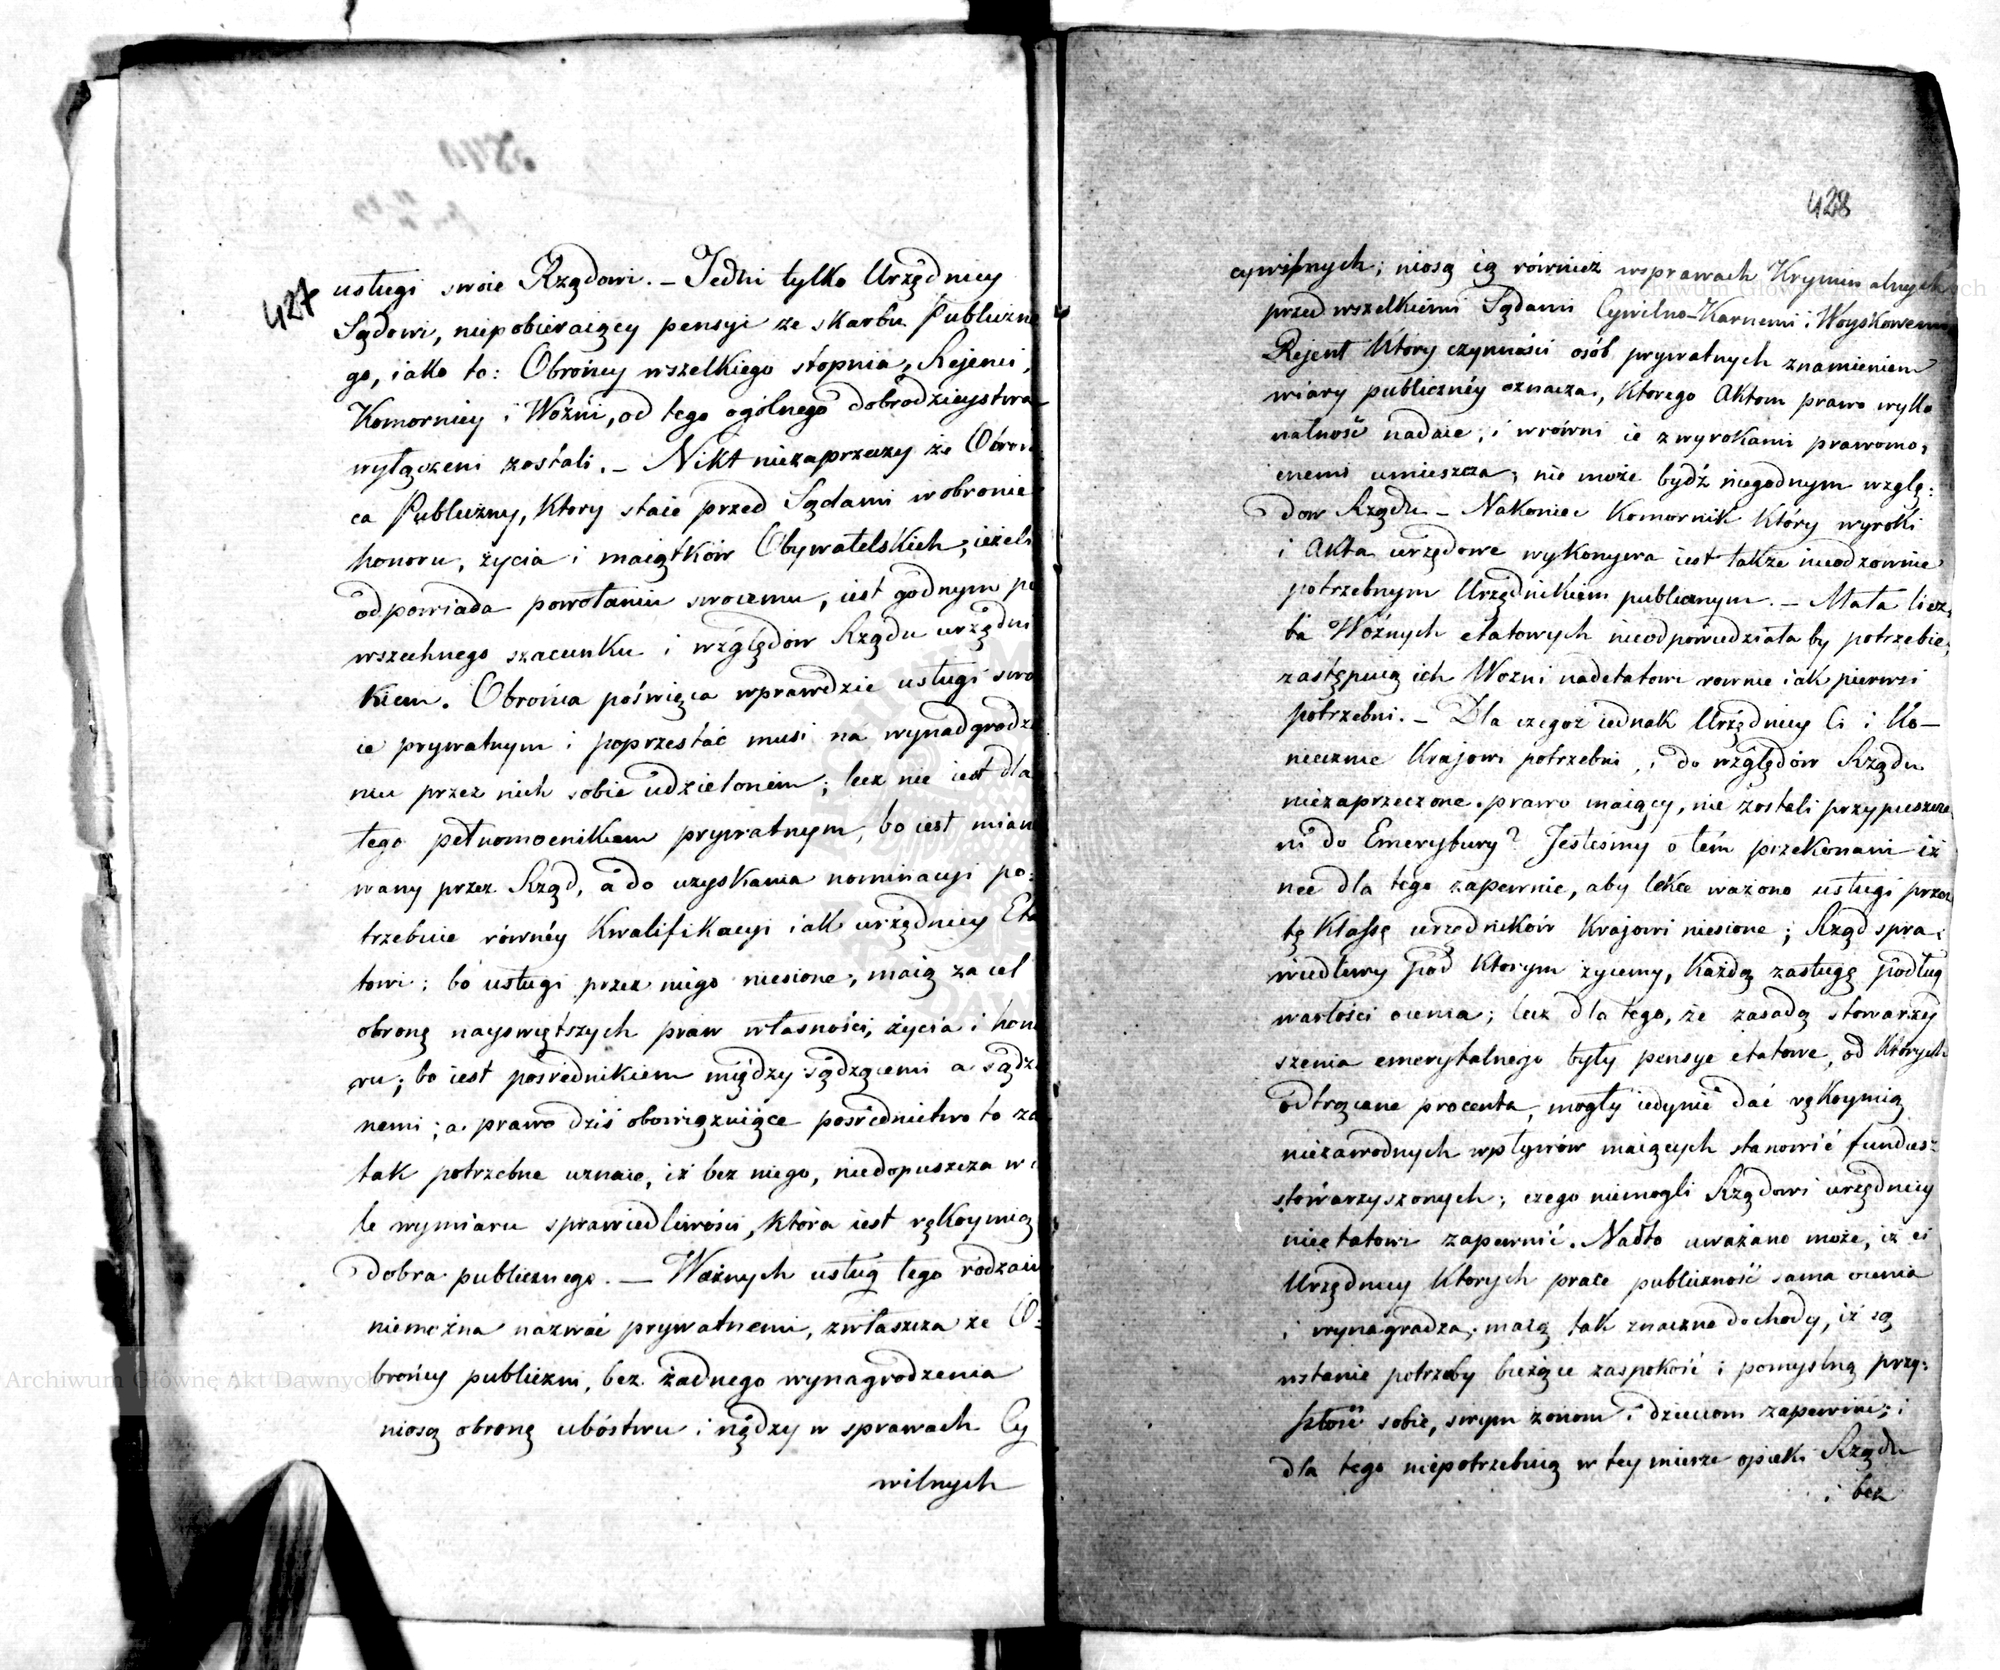 427
usługi swoie Rządowi. – Jedni tylko Urzędnicy
Sądowi, niepobieraiący pensyi ze skarbu Publiczne
go, iako to: Obrońcy wszelkiego stopnia, Rejenci,
Komornicy i Woźni, od tego ogólnego dobrodzieystwa
wyłączeni zostali. – Nikt niezaprzeczy że Obroń
ca Publiczny, Ktory staie przed Sądami w obronie
honoru, życia i maiątków Obywatelskich, ieżeli
odpowiada powołaniu swoiemu, iest godnym po
wszechnego szacunku i względów Rządu urzędni
kiem. Obrońca poświęca wprawdzie usługi swo
ie prywatnym i poprzestać musi na wynadgrodze
niu przez nich sobie udzielonem; lecz nie iest dla
tego pełnomocnikiem prywatnym, bo iest miano
wany przez Rząd, a do uzyskania nominacyi po:
trzebuie równéy Kwalifikacyi iak urzędnicy Eta
towi; bo usługi przez niego niesione, maią za cel
obronę nayświętszych praw własności, życia i hono
ru; bo iest pośrednikiem między sądzącemi a sądzo
nemi; a prawo dziś obowiązuiące pośrednictwo to za
tak potrzebne uznaie, iż bez niego, niedopuszcza w
le wymiaru sprawiedliwości, Która iest rękoymią
dobra publicznego. – Ważnych usług tego rodzaiu
niemożna nazwać prywatnemi, zwłaszcza że O:
brońcy publiczni, bez żadnego wynagrodzenia
niosą obronę ubóstwu i nędzy w sprawach Cy
wilnych
428
cywilnych; niosą ią również w sprawach Kryminalnych
przed wszelkiemi Sądami Cywilno-Karnemi i Woyskowemi
Rejent Który czynności osób prywatnych znamieniem
wiary publicznéy oznacza, Ktorego Aktom prawo wyko
nalność nadaie, i w równi ie z wyrokami prawomo,
cnemi umieszcza, nie może bydź niegodnym wzglę:
dow Rządu – Nakoniec Komornik Który wyroki
i Akta urzędowe wykonywa iest także nieodzownie
potrzebnym Urzędnikiem publicznym. – Mała licz,
ba Woźnych etatowych nieodpowiedziała by potrzebie,
zastępuią ich Wozni nadetatowi rownie iak pierwsi
potrzebni. – Dla czegoż iednak Urzędnicy Ci i Ko–
niecznie Krajowi potrzebni, i do względów Rządu
niezaprzeczone prawo maiący, nie zostali przypuszcze
ni do Emerytury? Jesteśmy o tém przekonani iż
nie dla tego zapewnie, aby lekce ważono usługi przez
tę Klassę urzędników Krajowi niesione; Rząd spra:
wiedliwy pod Ktorym żyiemy, Każdą zasługę podług
wartości ocenia; lecz dla tego, że zasadą stowarzy
szenia emerytalnego były pensye etatowe, od Których
odtrącane procenta, mogły iedynie dać rękoymią
niezawodnych wpływów maiących stanowić fundusz
stowarzyszonych; czego niemogli Rządowi urzędnicy
nieetatowi zapewnić. Nadto uważano może, iż ci
Urzędnicy Ktorych prace publiczność sama ocenia
i wynagradza, maią tak znaczne dochody, iż są
wstanie potrzeby bieżące zaspokoić i pomyslną przy:
szłość sobie, swym żonom i dzieciom zapewnić; i
dla tego niepotrzebuią w tey mierze opieki Rządu
bez